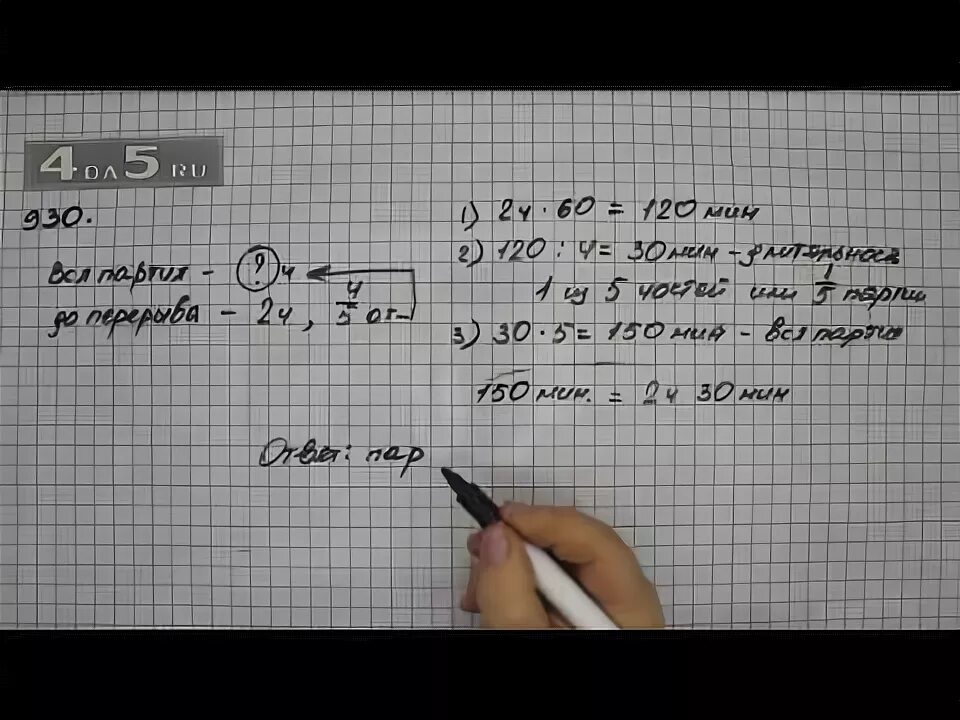 4 ДЛ 5 RU
930.
Вся партия - ? ч
до перерыва - 2ч, 4/5 от
1) 2ч · 60 = 120 мин
2) 120 : 4 = 30 мин - длительность
1 из 5 частей или 1/5 партии
3) 30 · 5 = 150 мин - вся партия
150 мин. = 2ч 30 мин
Ответ: пар